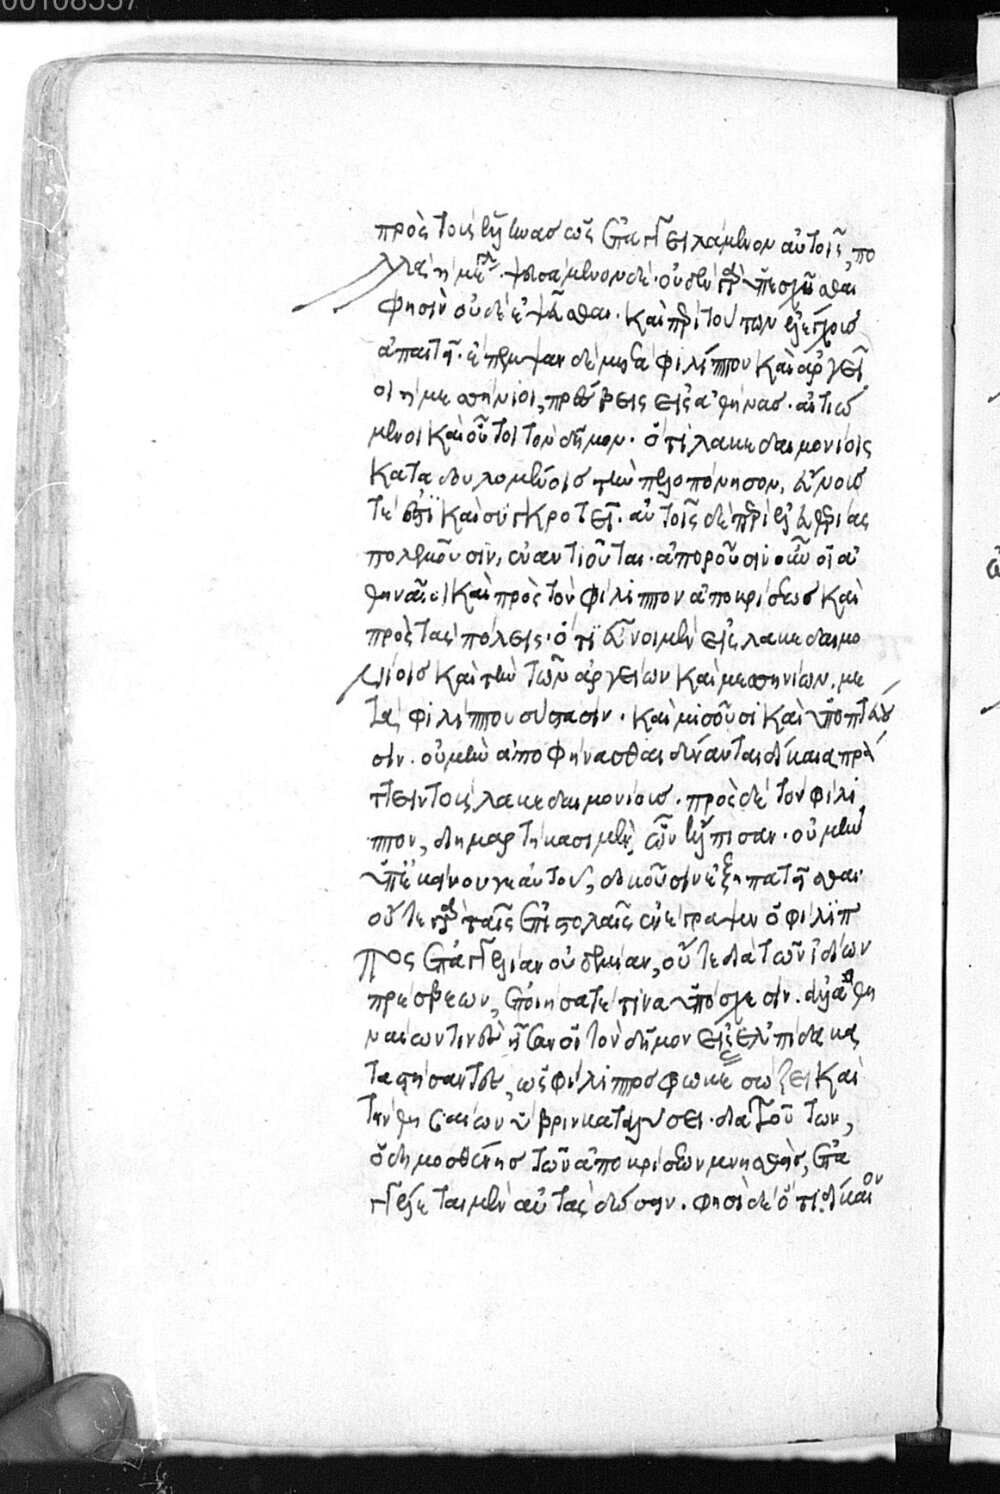 πρὸς τοὺς ἕλληνας ὡς ἐπαγγειλάμενον αὐτοῖς, πο
λλὰ ἢ μεγάλ. ψευσάμενον δέ. οὐδὲν γὰρ ὑπεσχῆσθαι
φησὶν οὐδὲ ἐψεῦσθαι. καὶ περὶ τούτων ἐλέγχους
ἀπαιτεῖ. ἔπεμψαν δὲ μετὰ φιλίππου καὶ ἀργεῖ
οι ἢ μεσσήνιοι, πρέσβεις εἰς ἀθήνας. αἰτιώ
μενοι καὶ οὗτοι τὸν δῆμον. ὅτι λακεδαιμονίοις
καταδουλομένοις τὴν πελοπόνησον, εὔνους
τέ ἐστι καὶ συγκροτεῖ. αὐτοῖς δὲ περὶ ἐλευθερίας
πολεμοῦσιν, ἐναντιοῦται. ἀποροῦσιν οὖν οἱ ἀ
θηναῖοι καὶ πρὸς τὸν φίλιππον ἀποκρίσεως καὶ
πρὸς τὰς πόλεις. ὅτι εὖνοι μὲν εἰσὶ λακεδαιμο
νίοις καὶ τὴν τῶν ἀργείων καὶ μεσσηνίων, με
τὰ φιλίππου σύστασιν. καὶ μισοῦσι καὶ ὑποπτεύου
σιν. οὐ μὴν ἀποφήνασθαι δύνανται δίκαια πρά
ττειν τοὺς λακεδαιμονίους. πρὸς δὲ τὸν φίλι
ππον, διημαρτήκασι μὲν, ὧν ἤλπισαν. οὐ μὴν
ὑπ' ἐκείνου γε αὐτοῦ, δοκοῦσιν ἐξηπατῆσθαι.
οὔτε γὰρ ταῖς ἐπιστολαῖς ἐνέγραψεν ὁ φίλιπ
πος ἐπαγγελίαν οὐδεμίαν, οὔτε διὰ τῶν ἰδίων
πρέσβεων, ἐποιήσατέ τινα ὑπόσχεσιν. ἀλλ' ἀθη
ναίων τινὲς ἦσαν οἱ τὸν δῆμον εἰς ἐλπίδα κα
ταστήσαντες, ὡς φίλιππος φωκέας σώζει καὶ
τὴν θηβαίων ὕβριν καταλύσει. διὰ τούτων,
ὁ δημοσθένης τῶν ἀποκρίσεων μνησθεὶς, ἐπα
γγέλλεται μὲν αὐτὰς δώσειν. φησὶ δὲ ὅτι δίκαιον